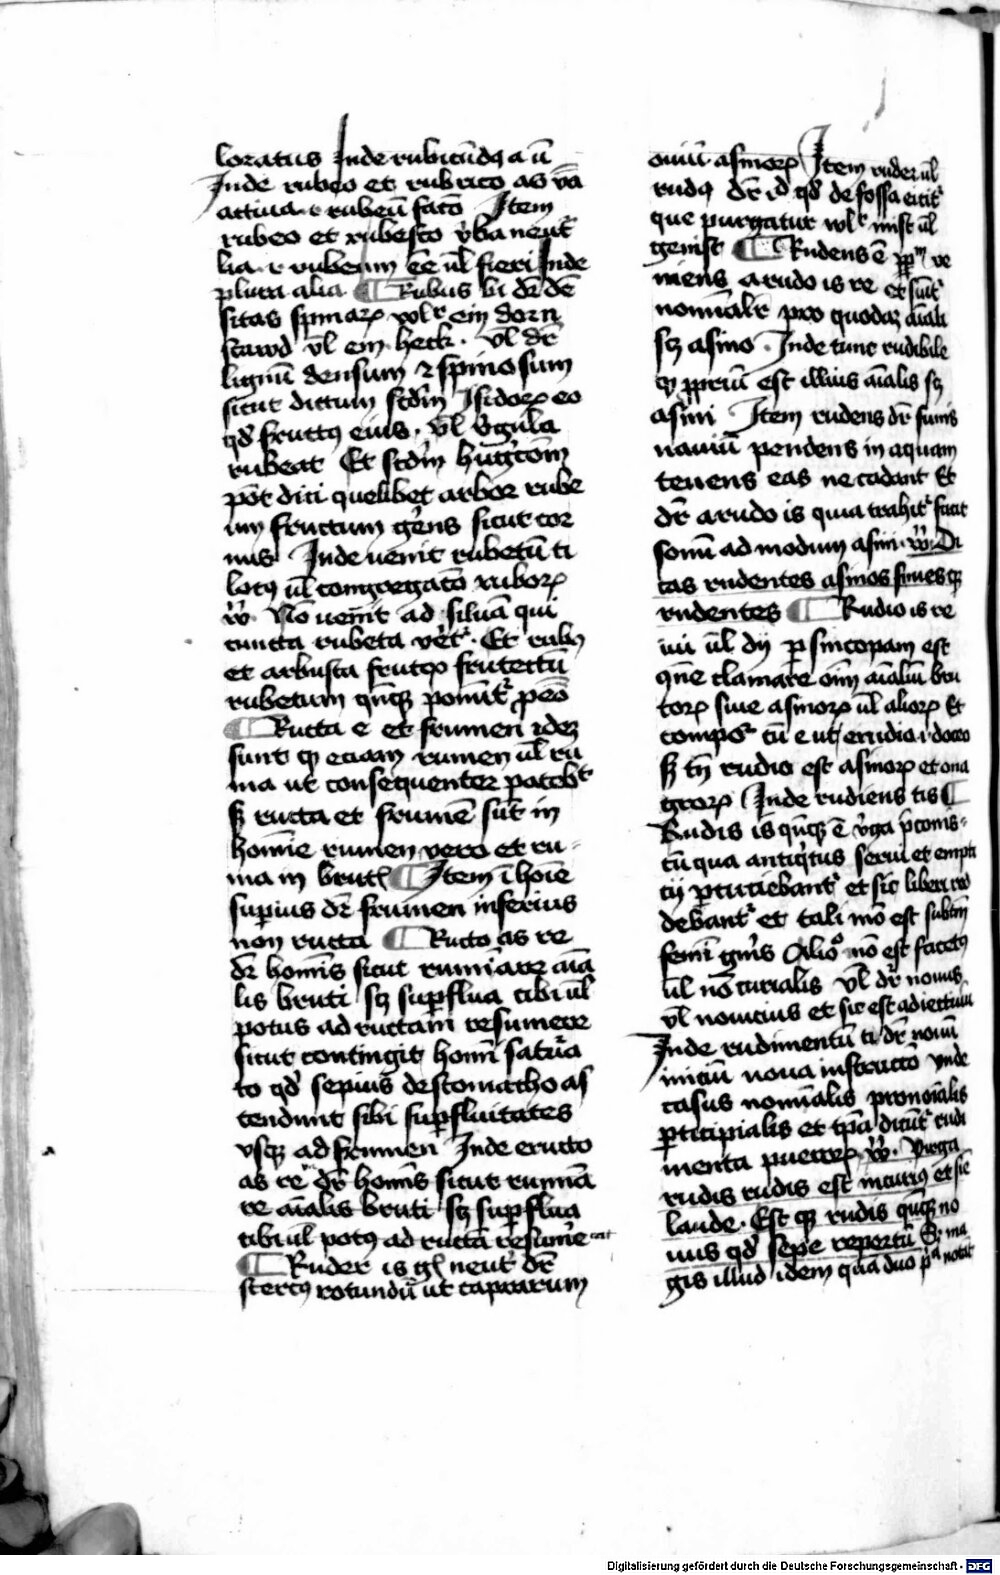 loratus Inde rubicūdꝰ a ū
Inde rubeo et rubrico as v̄a
actiua .i. rubeū fac̄o Item
rubeo et rubesco v̓ba neut̓
lia .i. rubeum ēe ul̄ fieri Inde
plura alia ¶ Rubus bi dr̄ dē
sitas spinaꝝ wlr̓ ein dorn
stawd vl̄ ein heck . vl̄ dr̄
lignū densum ⁊ spinosum
sicut dictum scdm̄ Isidoꝝ eo
qd̓ fructꝰ eius . vl̄ v̓gula
rubeat Et scdm̄
pōt dici quelibet arbor rube
um fructum ger̄ns sicut cor
nus Inde uenit rubetū ti
locꝰ ul̄ congregac̄o ruboꝝ
vꝰ. Nō uenit ad siluā qui
cuncta rubeta vēt̓ . Et rubꝰ
et arbusta frutex frutectū
rubetum qn̄qꝫ ponūt̓ p̱eo
¶ Ructa e et frumen idē
sunt qꝫ eciam rumen ul̄ ru
ma ut consequenter patebt̓
sꝫ ructa et frumē sūt in
homīe rumen vero et ru-
ma in brut̓ ¶ Item ī hoīe
sup̱ius dr̄ frumen inferius
non ructa ¶ Ructo as re
dr̄ homīs sicut rumīare aīa
lis bruti sꝫ sup̱flua cibi ul̄
potus ad ructam resumere
sicut contingit homī satura
to qd̓ sepius de stomacho as
cendunt sibi sup̱fluitates
vsqꝫ ad frumen Inde eructo
as re dr̄ homīs sicut rumīa
re aīalis bruti sꝫ sup̱flua
cibi ul̄ potꝰ ad ructā resume̓
¶ Ruder is gl̓ neut̓ dr̄
stercꝰ rotundū ut caprarum
ouiū asinoꝝ Item ruder ul̄
rudꝰ dr̄ id qd̓ de fossa eicit̓
que purgatur wlr̓ mist ul̄
genist ¶ Rudens ē ve
niens a rudo is re et sūit̓
nomīalr̓ pro quodā aīali
sꝫ asino . Inde tunc rudibile
qꝫ ꝓpriū est illius aīalis sꝫ
asini Item rudens dr̄ funis
nauiū pendens in aquam
tenens eas ne cadant Et
dr̄ a rudo is quia trahit̓ facit
sonū ad modum asini . vꝰ. Di
cas rudentes asinos funes qꝫ
rudentes ¶ Rudio is re
iui ul̄ dij p̱ sincopam est
clamare oīm aīaliū bru
toꝝ siue asinoꝝ ul̄ alioꝝ Et
compoꝰ cū e ut erudio .i. doceo
sꝫ tn̄ rudio est asinoꝝ et ona
groꝝ Inde rudiens tis ¶
Rudis is qn̄qꝫ ē v̓ga
tū qua antiqꝰtus serui et empti
cij p̱cuciebant̓ et sic liberi red
debant̓ et tali mō est subtm̄
femī gn̄is Alio mō est facetꝰ
ul̄ nō curialis vl̄ dr̄ nouus
vl̄ nouicius et sic est adiectiuū
Inde rudimentū ti dr̄ nouū
iniciū noua instructō vnde
casus nomīalis pronoīalis
p̱ticipialis et tp̄a dicūt̓ rudi
menta pueroꝝ vꝰ. Virga
rudis rudis est incurꝰ et sīe
laude . Est qꝫ rudis qn̄qꝫ no
uus qd̓ sepe rep̱tū Sꝫ ma
gis illud idem qua duo notāt